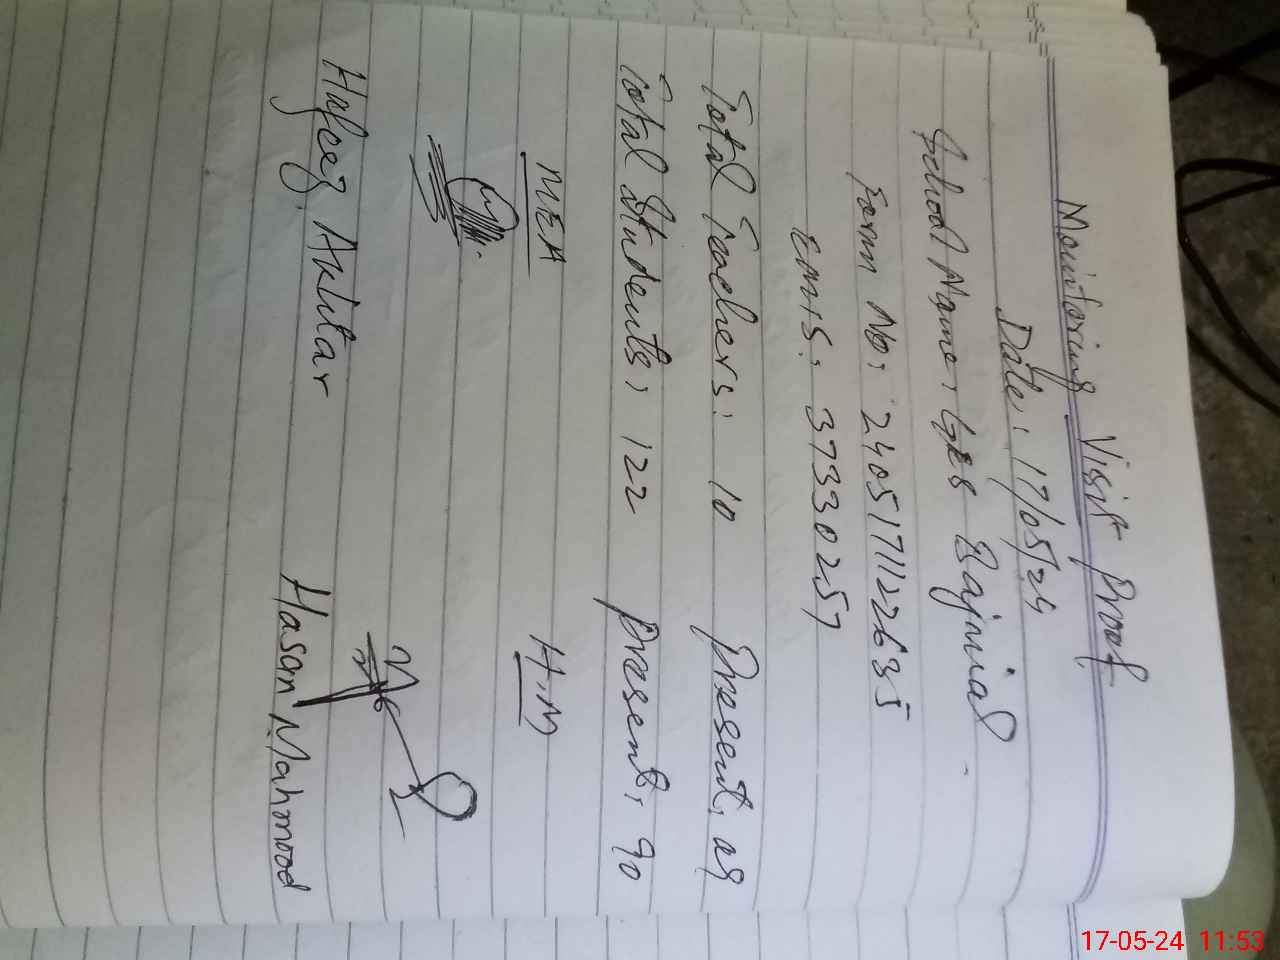 Monitoring Visit Proof
Date: 17/05/24
School Name: GES Bajnial
Form No: 240517112635
EMIS: 37330257
Total Teachers: 10 Present: 09
Total Students: 122 Present: 90
MEA H.M
Hafeez Akhtar Hasan Mahmood
17-05-24 11:53